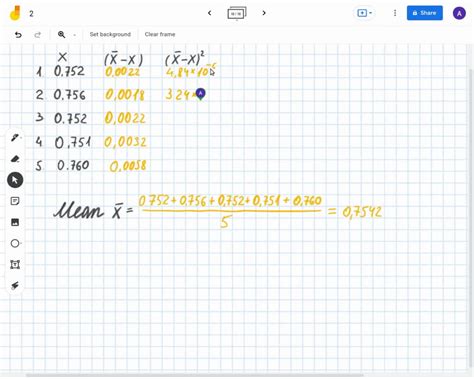 2
Share
A
Set background
Clear frame
X (X̄-X) (X̄-X)²
1. 0.752 0,0022 4,84×10⁻⁶
2. 0.756 0,0018 3.24×
A
3. 0.752 0,0022
4. 0,751 0,0032
5. 0.760 0,0058
Mean X̄ = 0.752+0,756+0,752+0,751+0,760 / 5 = 0,7542